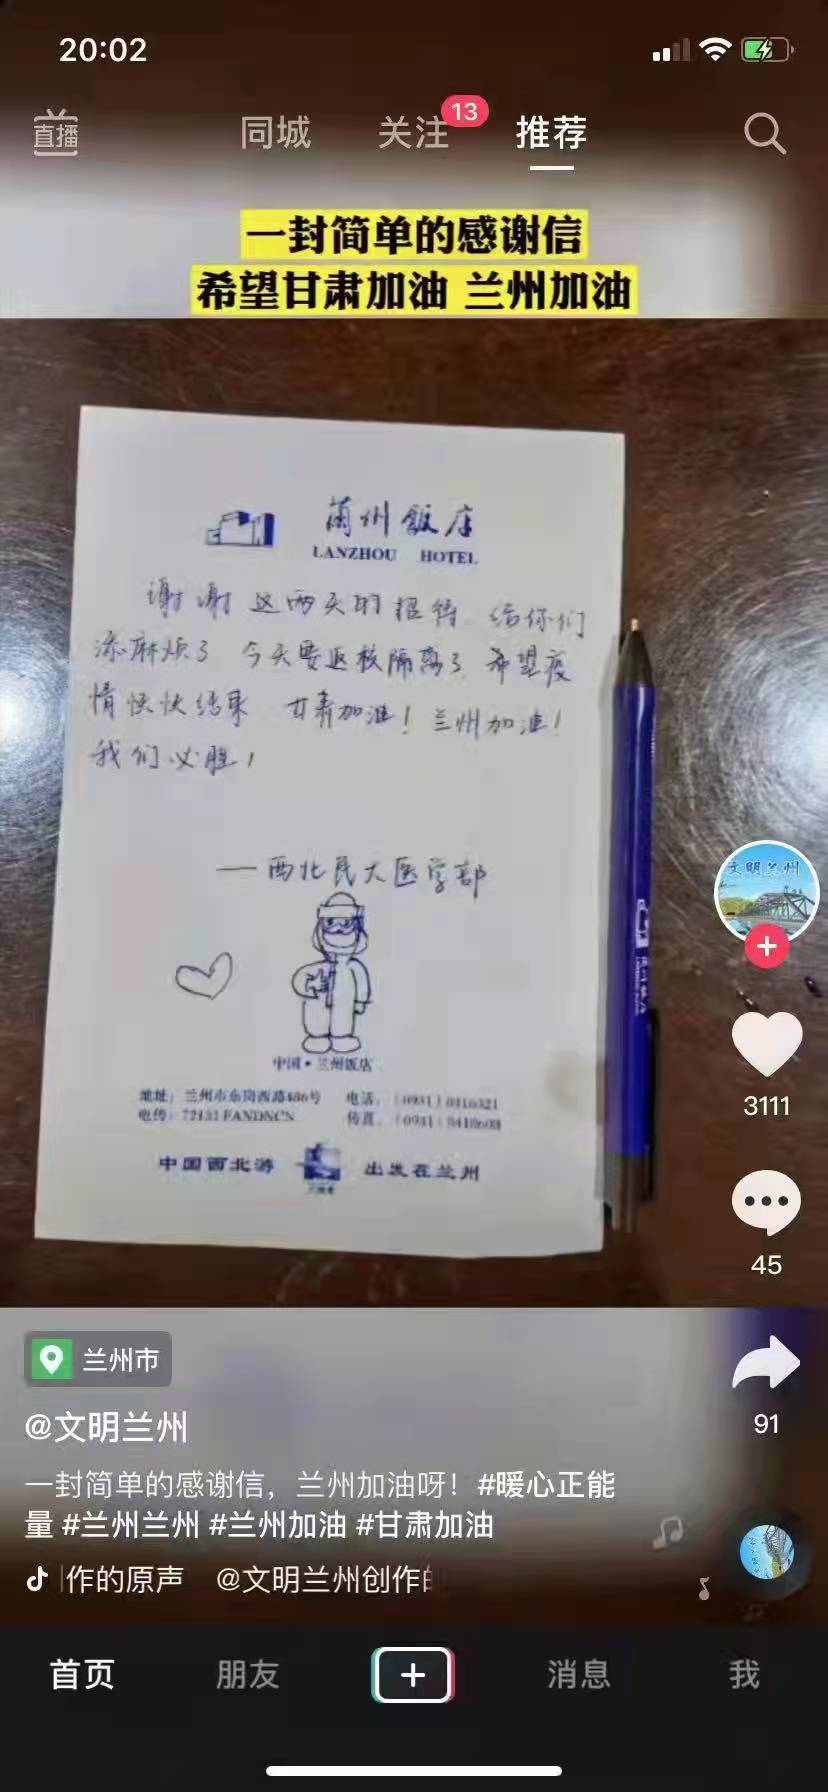 20:02
直播
同城
关注
13
推荐
一封简单的感谢信
希望甘肃加油 兰州加油
蘭州飯店
LANZHOU HOTEL
谢谢这两天的招待 给你们
添麻烦了 今天要返校隔离了 希望疫
情快快结束 甘肃加油！兰州加油！
我们必胜！
——西北民大医学部
中国·兰州饭店
地址：兰州市东岗西路486号 电话：（0931）
电传：72131 FANDNCN 传真：（0931）
中国西北游 出发在兰州
文明兰州
3111
45
91
兰州市
@文明兰州
一封简单的感谢信，兰州加油呀！#暖心正能
量 #兰州兰州 #兰州加油 #甘肃加油
作的原声 @文明兰州创作的
首页
朋友
消息
我